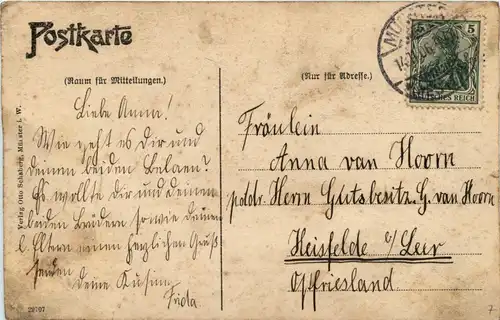 Postkarte
(Raum für Mitteilungen.)
(Nur für Adresse.)
MÜNSTER
5 5
DEUTSCHES REICH
Liebe Anna!
Wie geht es Dir und
deinen beiden
Ich wollte dir und deinen
beiden Brüdern sowie deinen
l. Eltern einen herzlichen Gruß
senden
Deine Kusine
Frida
Fräulein
Anna van Hoorn
Herrn Gutsbesitz. G. van Hoorn
Heisfelde b/Leer
Ostfriesland
Verlag Otto Schaberg, Münster i. W.
29707
7